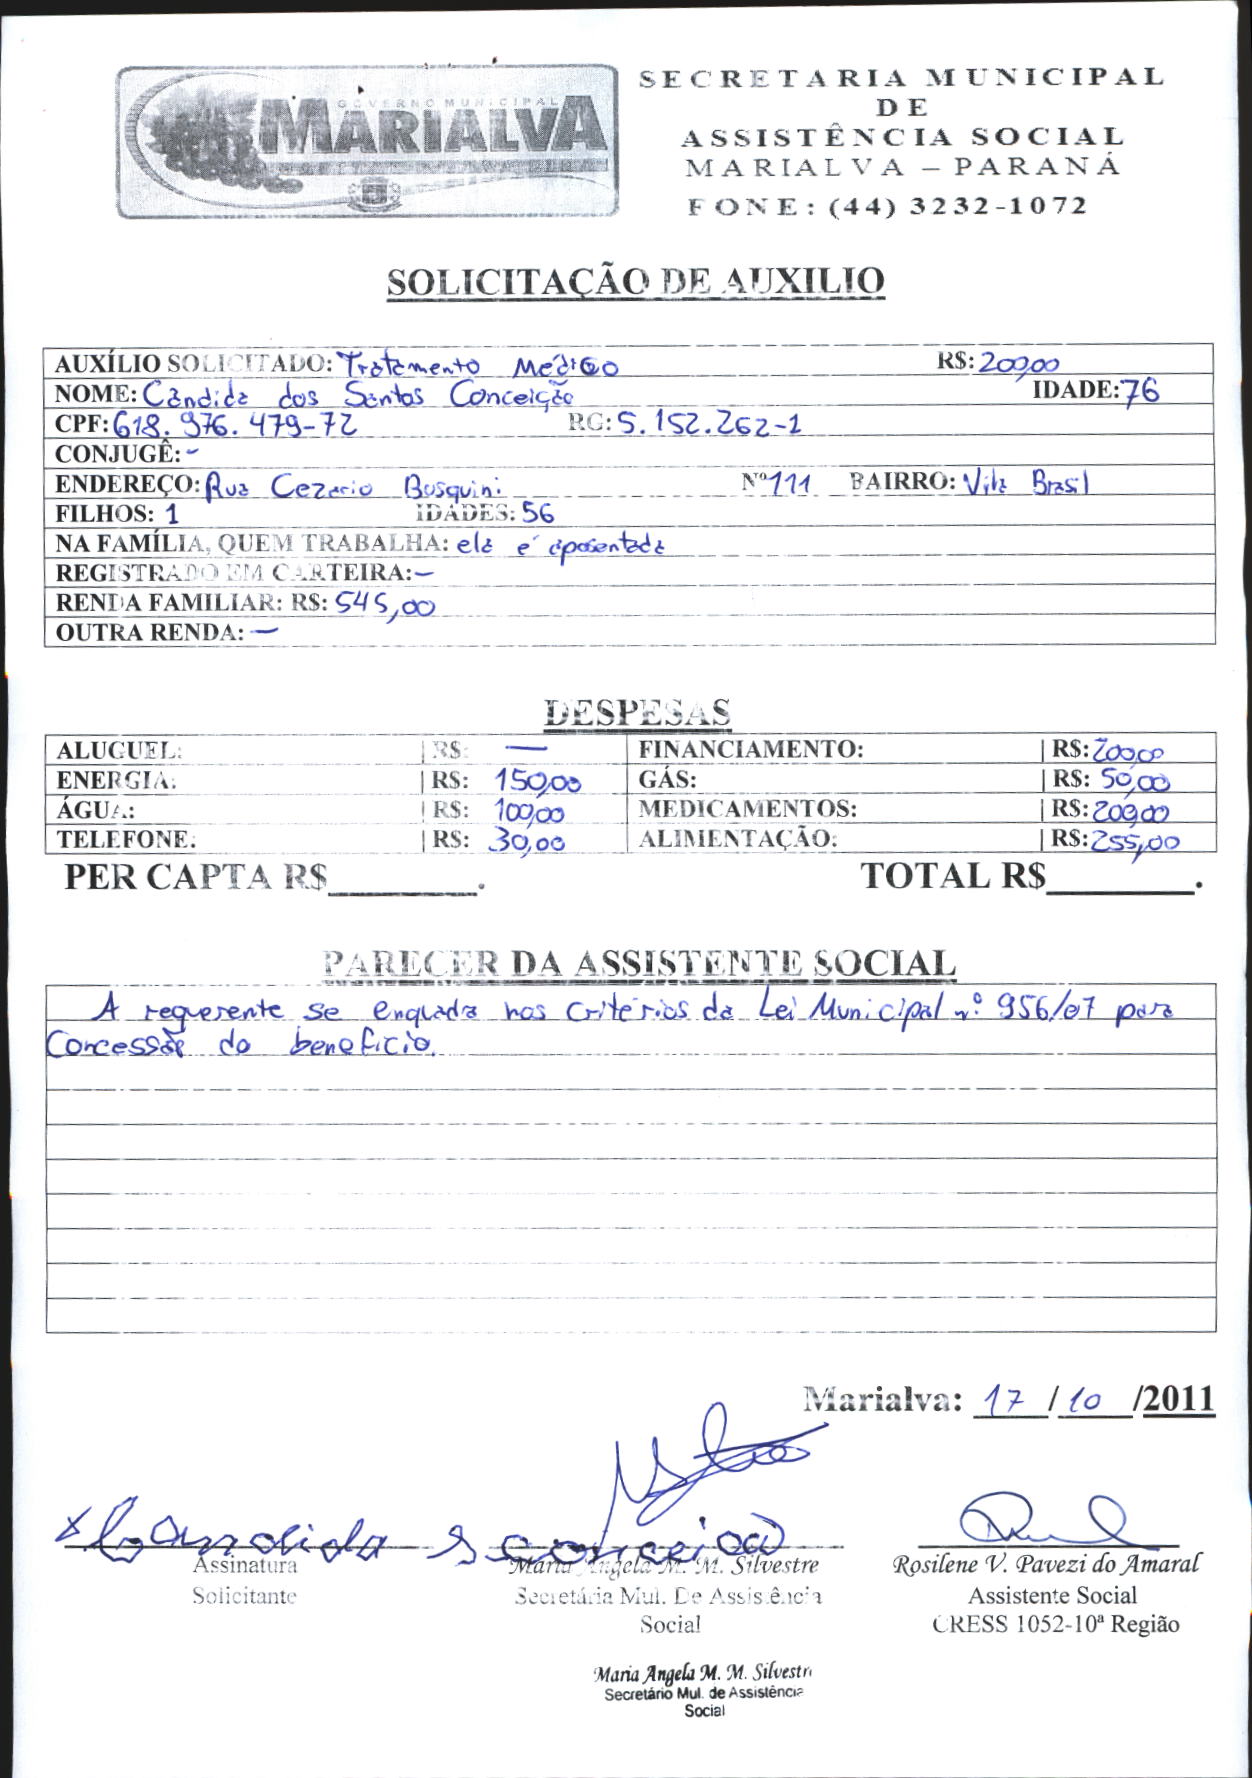 GOVERNO MUNICIPAL
MARIALVA
SECRETARIA MUNICIPAL
DE
ASSISTÊNCIA SOCIAL
MARIALVA – PARANÁ
FONE: (44) 3232-1072
SOLICITAÇÃO DE AUXILIO
AUXÍLIO SOLICITADO: Tratamento Médico R$: 200,00
NOME: Cândida dos Santos Conceição IDADE: 76
CPF: 618.976.479-72 RG: 5.152.262-1
CONJUGÊ: -
ENDEREÇO: Rua Cezario Busquini Nº 111 BAIRRO: Vila Brasil
FILHOS: 1 IDADES: 56
NA FAMÍLIA, QUEM TRABALHA: ela é aposentada
REGISTRADO EM CARTEIRA: -
RENDA FAMILIAR: R$: 545,00
OUTRA RENDA: -
DESPESAS
ALUGUEL: R$: — FINANCIAMENTO: R$: 200,00
ENERGIA: R$: 150,00 GÁS: R$: 50,00
ÁGUA: R$: 100,00 MEDICAMENTOS: R$: 200,00
TELEFONE: R$: 30,00 ALIMENTAÇÃO: R$: 255,00
PER CAPTA R$________. TOTAL R$________.
PARECER DA ASSISTENTE SOCIAL
A requerente se enquada nos critérios da Lei Municipal nº 956/07 para
Concessão do benefício.
Marialva: 17 / 10 /2011
x Candida S Conceicao
Assinatura
Solicitante
Maria Angela M. M. Silvestre
Secretária Mul. De Assistência
Social
Rosilene V. Pavezi do Amaral
Assistente Social
CRESS 1052-10ª Região
Maria Angela M. M. Silvestr
Secretário Mul. de Assistência
Social